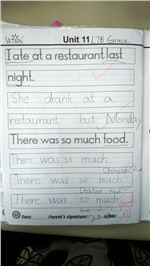 Unit 11 17B Grace
I ate at a restaurant last
night.
She drank at a
restaurant last Monday
There was so much food.
There was so much
Chinese
There was so much
Italian food
There was so much
Date: Parent's signature: